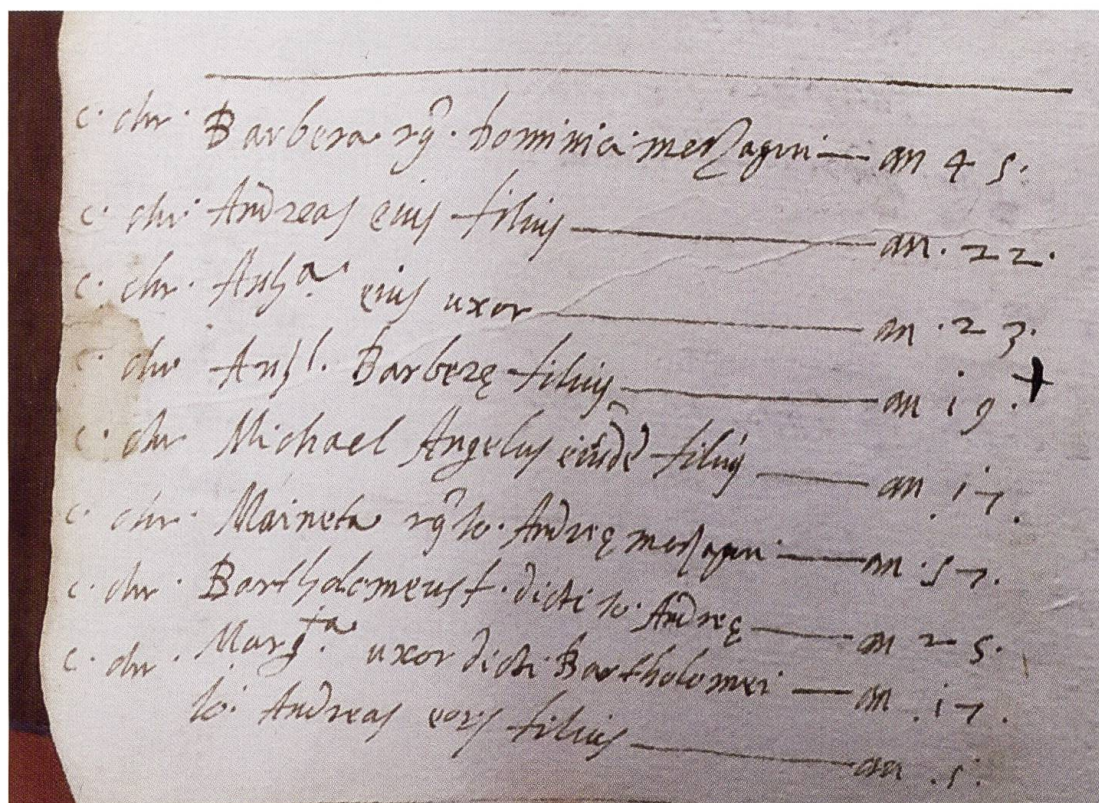 c. chr. Barbera rq. Dominici merzagini — an 45.
c. chr. Andreas eius filius — an. 22.
c. chr. Ant.ª eius uxor — an. 23.
c. chr Ant. Barberę filius — an 19. +
c. chr Michael Angelus eiusdē filius — an. 17.
c. chr. Maineta rq Io. Andreę merzagini — an. 57.
c. chr. Bartholomeus f. dicti Io. Andreę — an 25.
c. chr. Marg.ta uxor dicti Bartholomei — an. 17.
Io. Andreas eor filius — an .5.